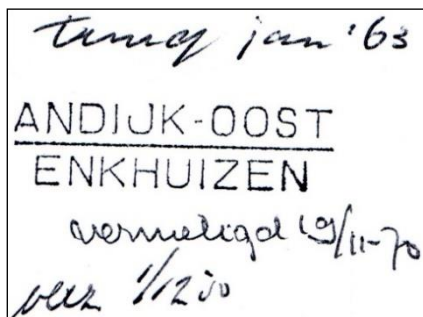 terug jan '63
ANDIJK-OOST
ENKHUIZEN
vernietigd 19/11-70
verz 1/12